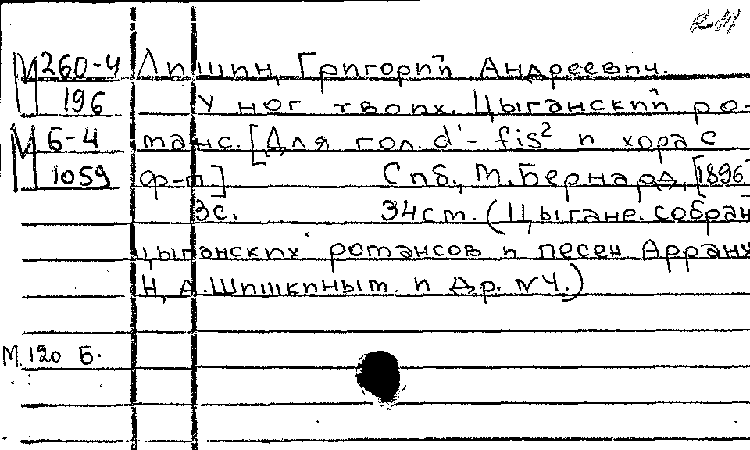 R-M
М 260-4 Лишин, Григорий Андреевич.
196 У ног твоих. Цыганский ро-
М Б-4 манс. [Для гол. d¹- fis² и хора с
1059 ф-п] Спб., М. Бернард, [1896]
3с. 34см. (Цыгане. собран
цыганских романсов и песен Арранж
Н, А. Шишкиным. и др. №4.)
М. 120 Б.